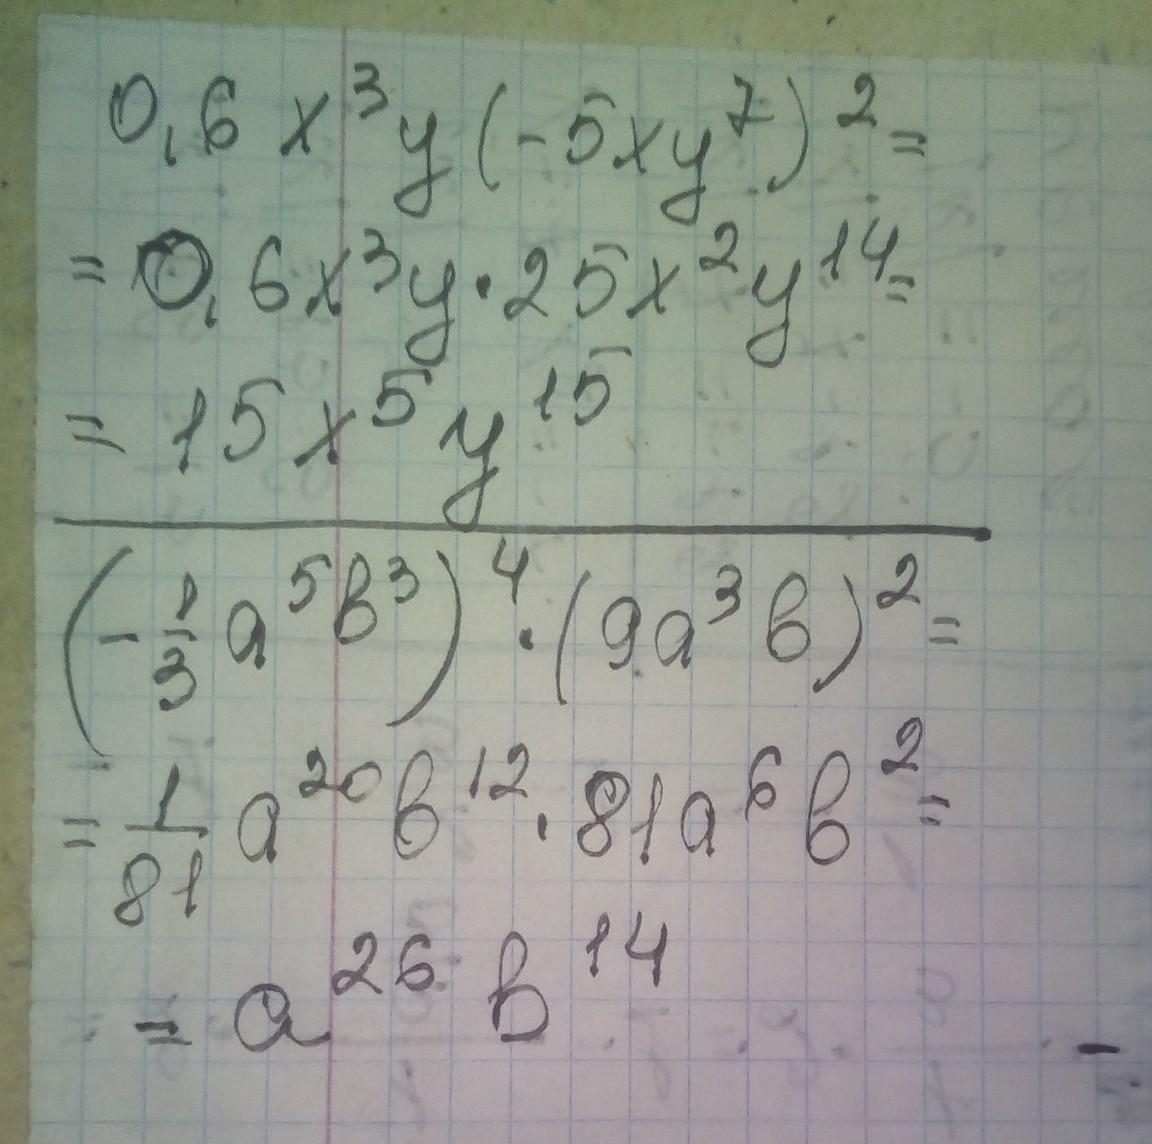 0,6x³y(-5xy⁷)²=
=0,6x³y·25x²y¹⁴=
=15x⁵y¹⁵
(-1/3 a⁵b³)⁴·(9a³b)²=
=1/81 a²⁰b¹²·81a⁶b²=
=a²⁶b¹⁴